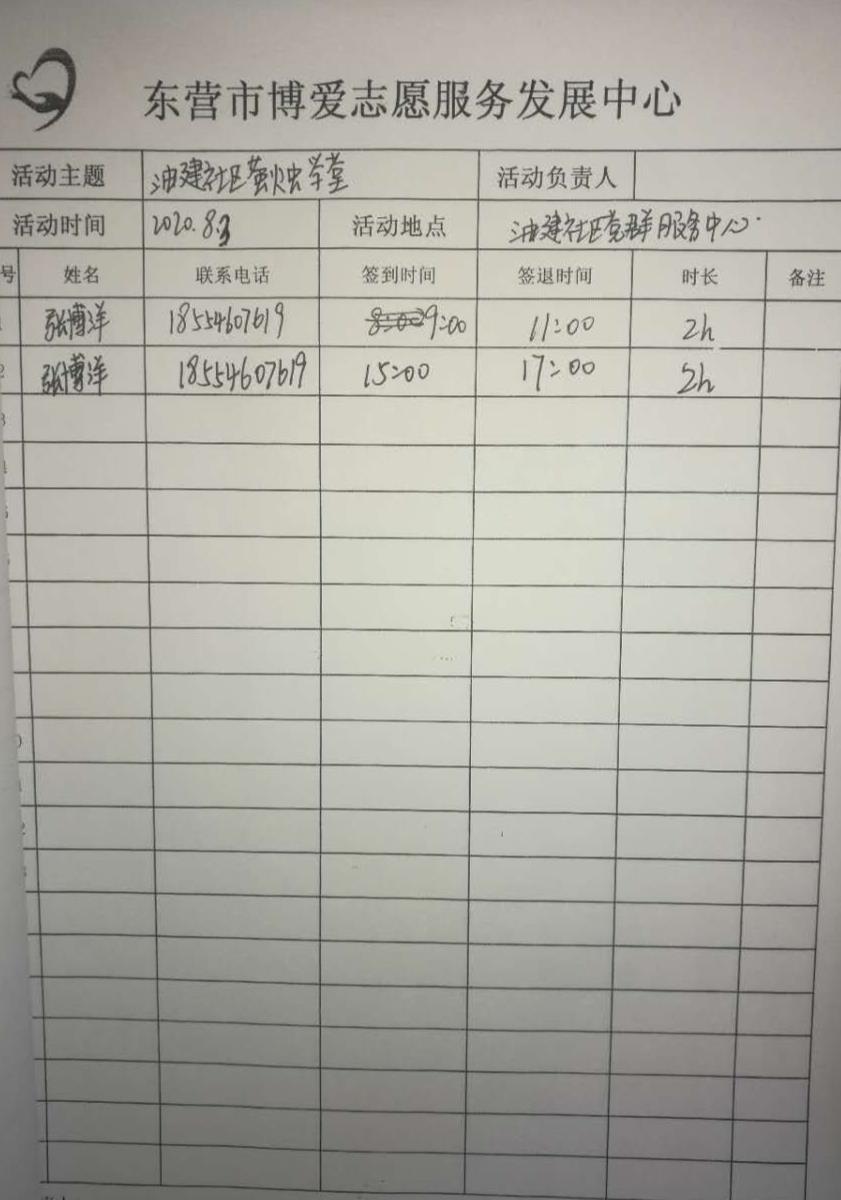 东营市博爱志愿服务发展中心
活动主题 油建社区萤火虫学堂 活动负责人
活动时间 2020.8.3 活动地点 油建社区党群服务中心
号 姓名 联系电话 签到时间 签退时间 时长 备注
张博洋 18554607619 9:00 11:00 2h
2 张博洋 18554607619 15:00 17:00 2h